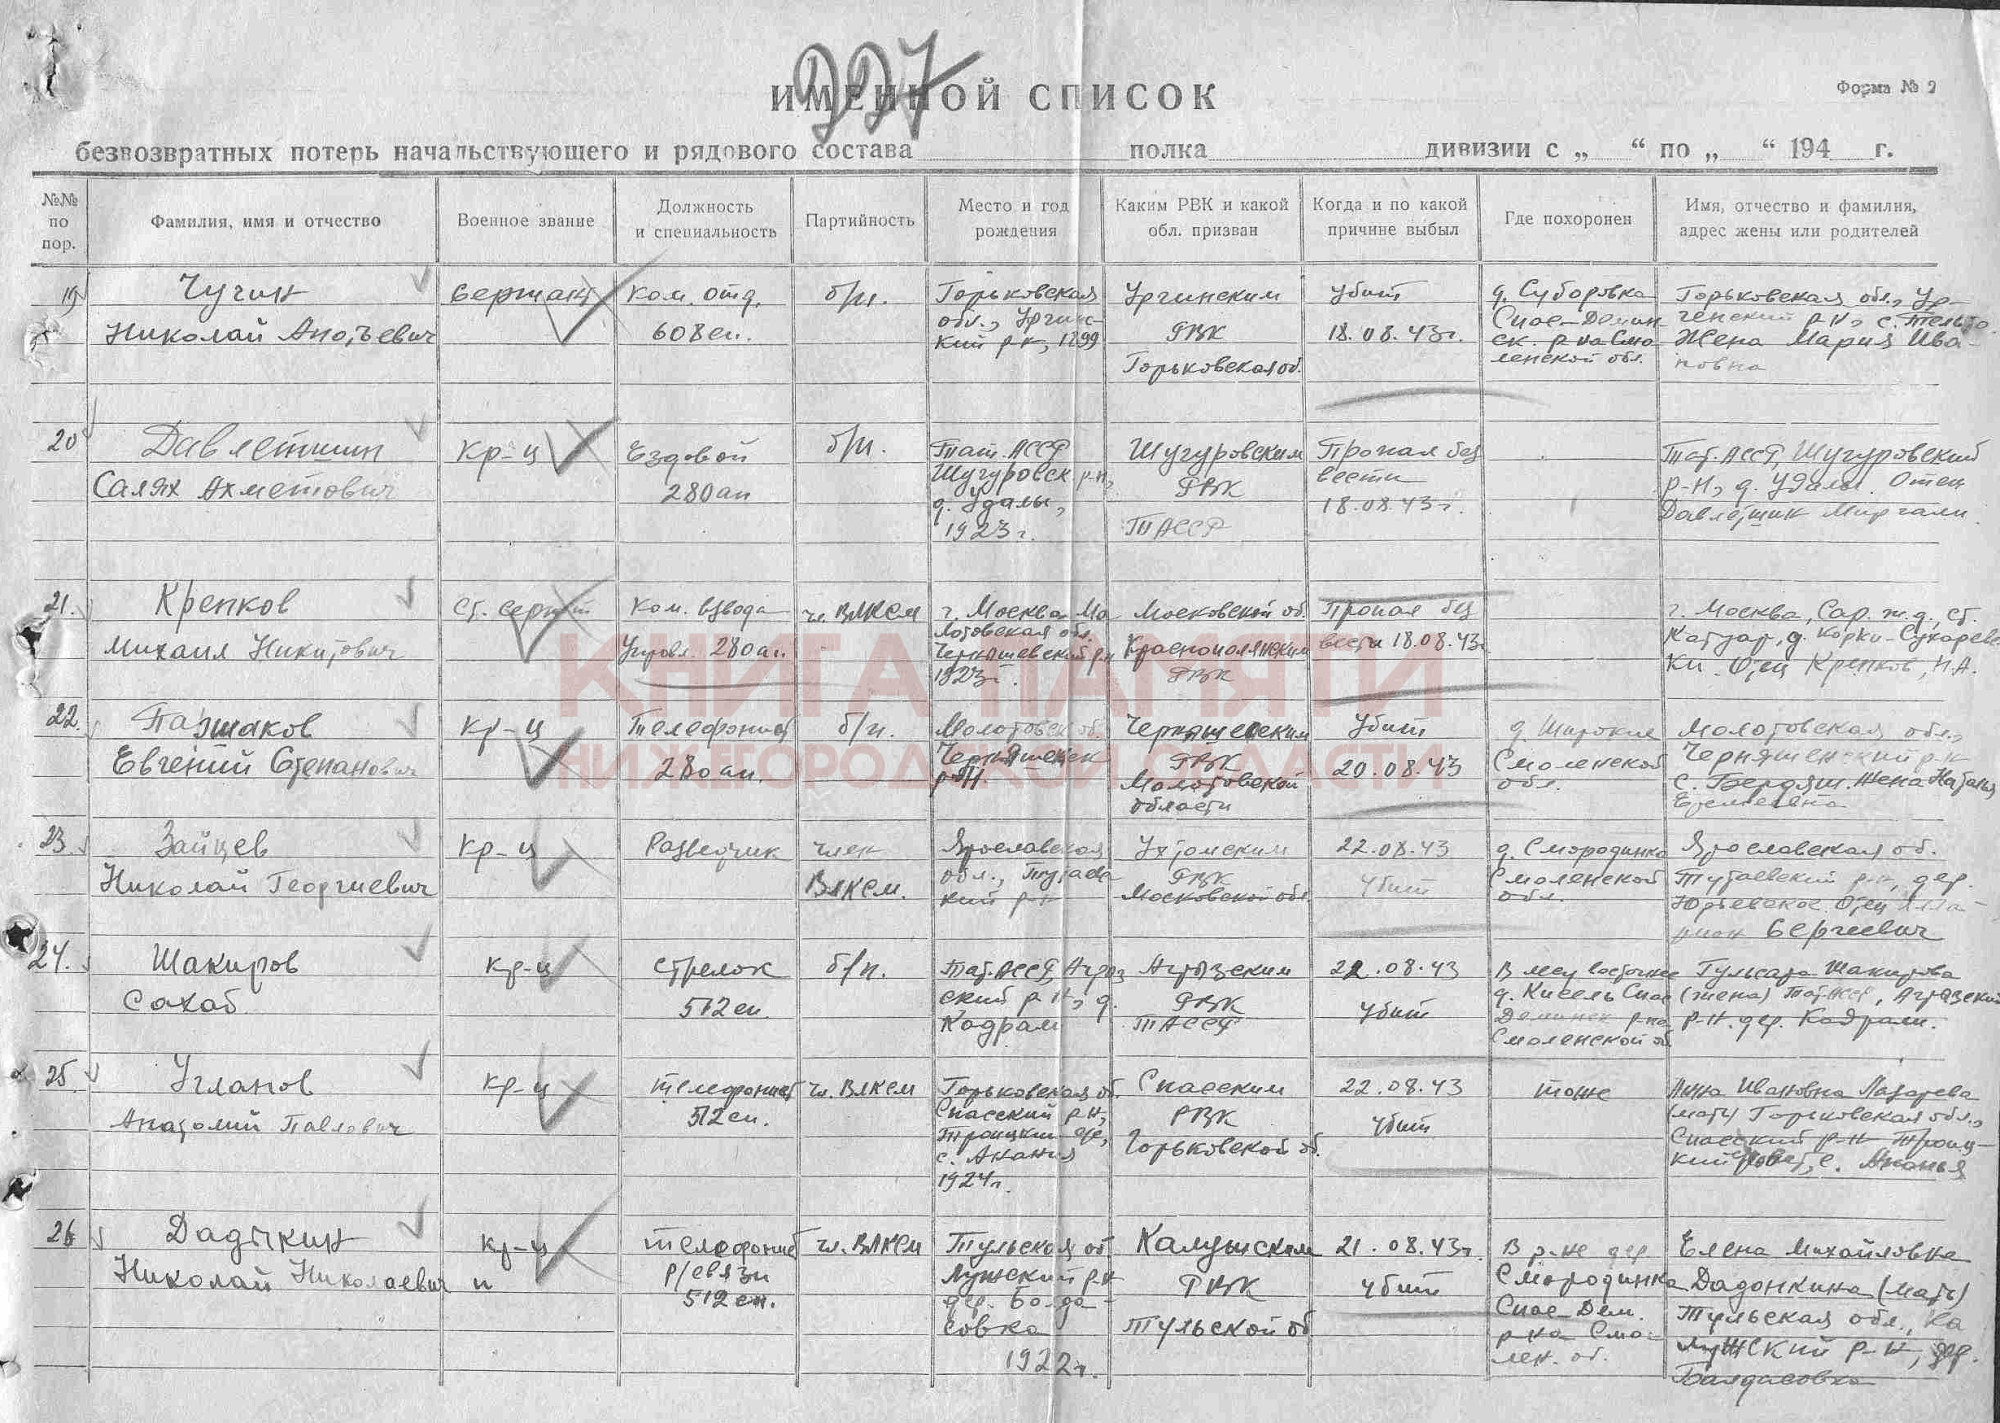 227
Форма № 2
ИМЕННОЙ СПИСОК
безвозвратных потерь начальствующего и рядового состава полка дивизии с „ “ по „ “ 194 г.
№№ по пор.
Фамилия, имя и отчество
Военное звание
Должность и специальность
Партийность
Место и год рождения
Каким РВК и какой обл. призван
Когда и по какой причине выбыл
Где похоронен
Имя, отчество и фамилия, адрес жены или родителей
19
Чугин
Николай
сержант
Ком. отд.
608 сп.
б/п.
Горьковская
обл., Ургин-
кий р-н, 1899
Ургинским
РВК
Горьковская об.
Убит
18.08.43г.
д. Суборовка
Спас-Демин
ск. р-на Смо
ленской обл.
Горьковская обл., Ур-
генский р-н, с.
Жена Мария Ива-
новна
20
Давлетшин
Салях Ахметович
кр-ц
Ездовой
280 ап
б/п.
Тат. АССР
Шугуровск р-н,
д. Удалы,
1923 г.
Шугуровским
РВК
ТАССР
Пропал без
вести
18.08.43г.
Тат. АССР, Шугуровский
р-н, д. Удалы. Отец
Давлетшин Миргали
21.
Крепков
Михаил Никитович
Ст. серж-т
Ком. взвода
Управл. 280 ап.
чл. ВЛКСМ
г. Москва, Мо
лотовская обл.
р-н
1923г.
Московской об.
Краснополянским
РВК
Пропал без
вести 18.08.43г
г. Москва, Сав. ж.д, ст.
Катуар, д. Горки-Сухарево
Отец Крепков, Н.А.
22.
Евгений Степанович
кр-ц
Телефонист
280 ап.
б/п.
Молотовск об.
р-н
РВК
Молотовской
области
Убит
20.08.43
д Широкие
Смоленской
обл.
Молотовская обл.,
р-н
с. Бердяш. Жена Наталья
23.
Зайцев
Николай Георгиевич
кр-ц
Разведчик
член
ВЛКСМ.
Ярославская
обл., Тутаев-
кий р-н
Ухтомским
РВК
Московской обл.
22.08.43
Убит
д. Смородинка
Смоленской
обл.
Ярославская об.
Тутаевский р-н, дер.
Юрьевское. Отец Илла-
рион Сергеевич
24.
Шакиров
Сахаб
кр-ц
стрелок
512 сп.
б/п.
Тат. АССР, Агрыз
ский р-н, д.
Кадрали
Агрызским
РВК
ТАССР
22.08.43
Убит
В лесу восточнее
д. Кисель Спас
Деминск р-на
Смоленской об.
Гульсара Шакирова
(жена) Тат. АССР, Агрызский
р-н. дер. Кадрали.
25
Угланов
Анатолий Павлович
кр-ц
телефонист
512 сп.
чл. ВЛКСМ
Горьковская об.
Спасский р-н,
Троицкий с/с,
с. Ананья
1924г.
Спасским
РВК
Горьковской об.
22.08.43
Убит
тоже
Анна Ивановна Лазарева
(мать) Горьковская обл.,
Спасский р-н Троиц-
кий с/совет, с. Ананья
26
Николай Николаевич
кр-ц
телефонист
р/связи
512 сп.
чл. ВЛКСМ
Тульская об
Лужский р-н
дер. Болда-
совка
1922г.
Калужским
РВК
Тульской об
21.08.43г.
Убит
В р-не дер.
Смородинка
Спас-Дем.
р-на Смо-
лен. об.
Елена Михайловна
Дадонкина (мать)
Тульская обл., Ка
лужский р-н, дер.
Балдасовка
КНИГА ПАМЯТИ
НИЖЕГОРОДСКОЙ ОБЛАСТИ